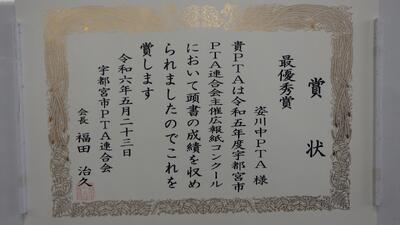 賞状
最優秀賞
姿川中PTA 様
貴PTAは令和五年度宇都宮市
PTA連合会主催広報紙コンクール
において頭書の成績を収め
られましたのでこれを
賞します
令和六年五月二十三日
宇都宮市PTA連合会
会長 福田 治久